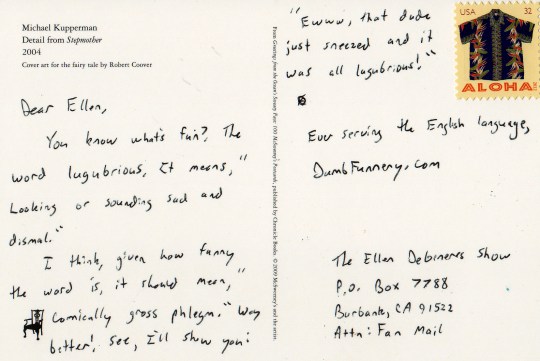 Michael Kupperman
Detail from Stepmother
2004
Cover art for the fairy tale by Robert Coover
Dear Ellen,
You know what's fun? The
word lugubrious. It means, "
Looking or sounding sad and
dismal."
I think, given how funny
the word is, it should mean, "
Comically gross phlegm." Way
better! See, I'll show you!
From Greetings from the Ocean's Sweaty Face: 100 McSweeney's Postcards, published by Chronicle Books. © 2009 McSweeney's and the artist.
"Ewww, that dude
just sneezed and it
was all lugubrious!"
USA 32
ALOHA
Ever serving the English language,
DumbFunnery.com
The Ellen Degineres Show
P.O. Box 7788
Burbank, CA 91522
Attn: Fan Mail